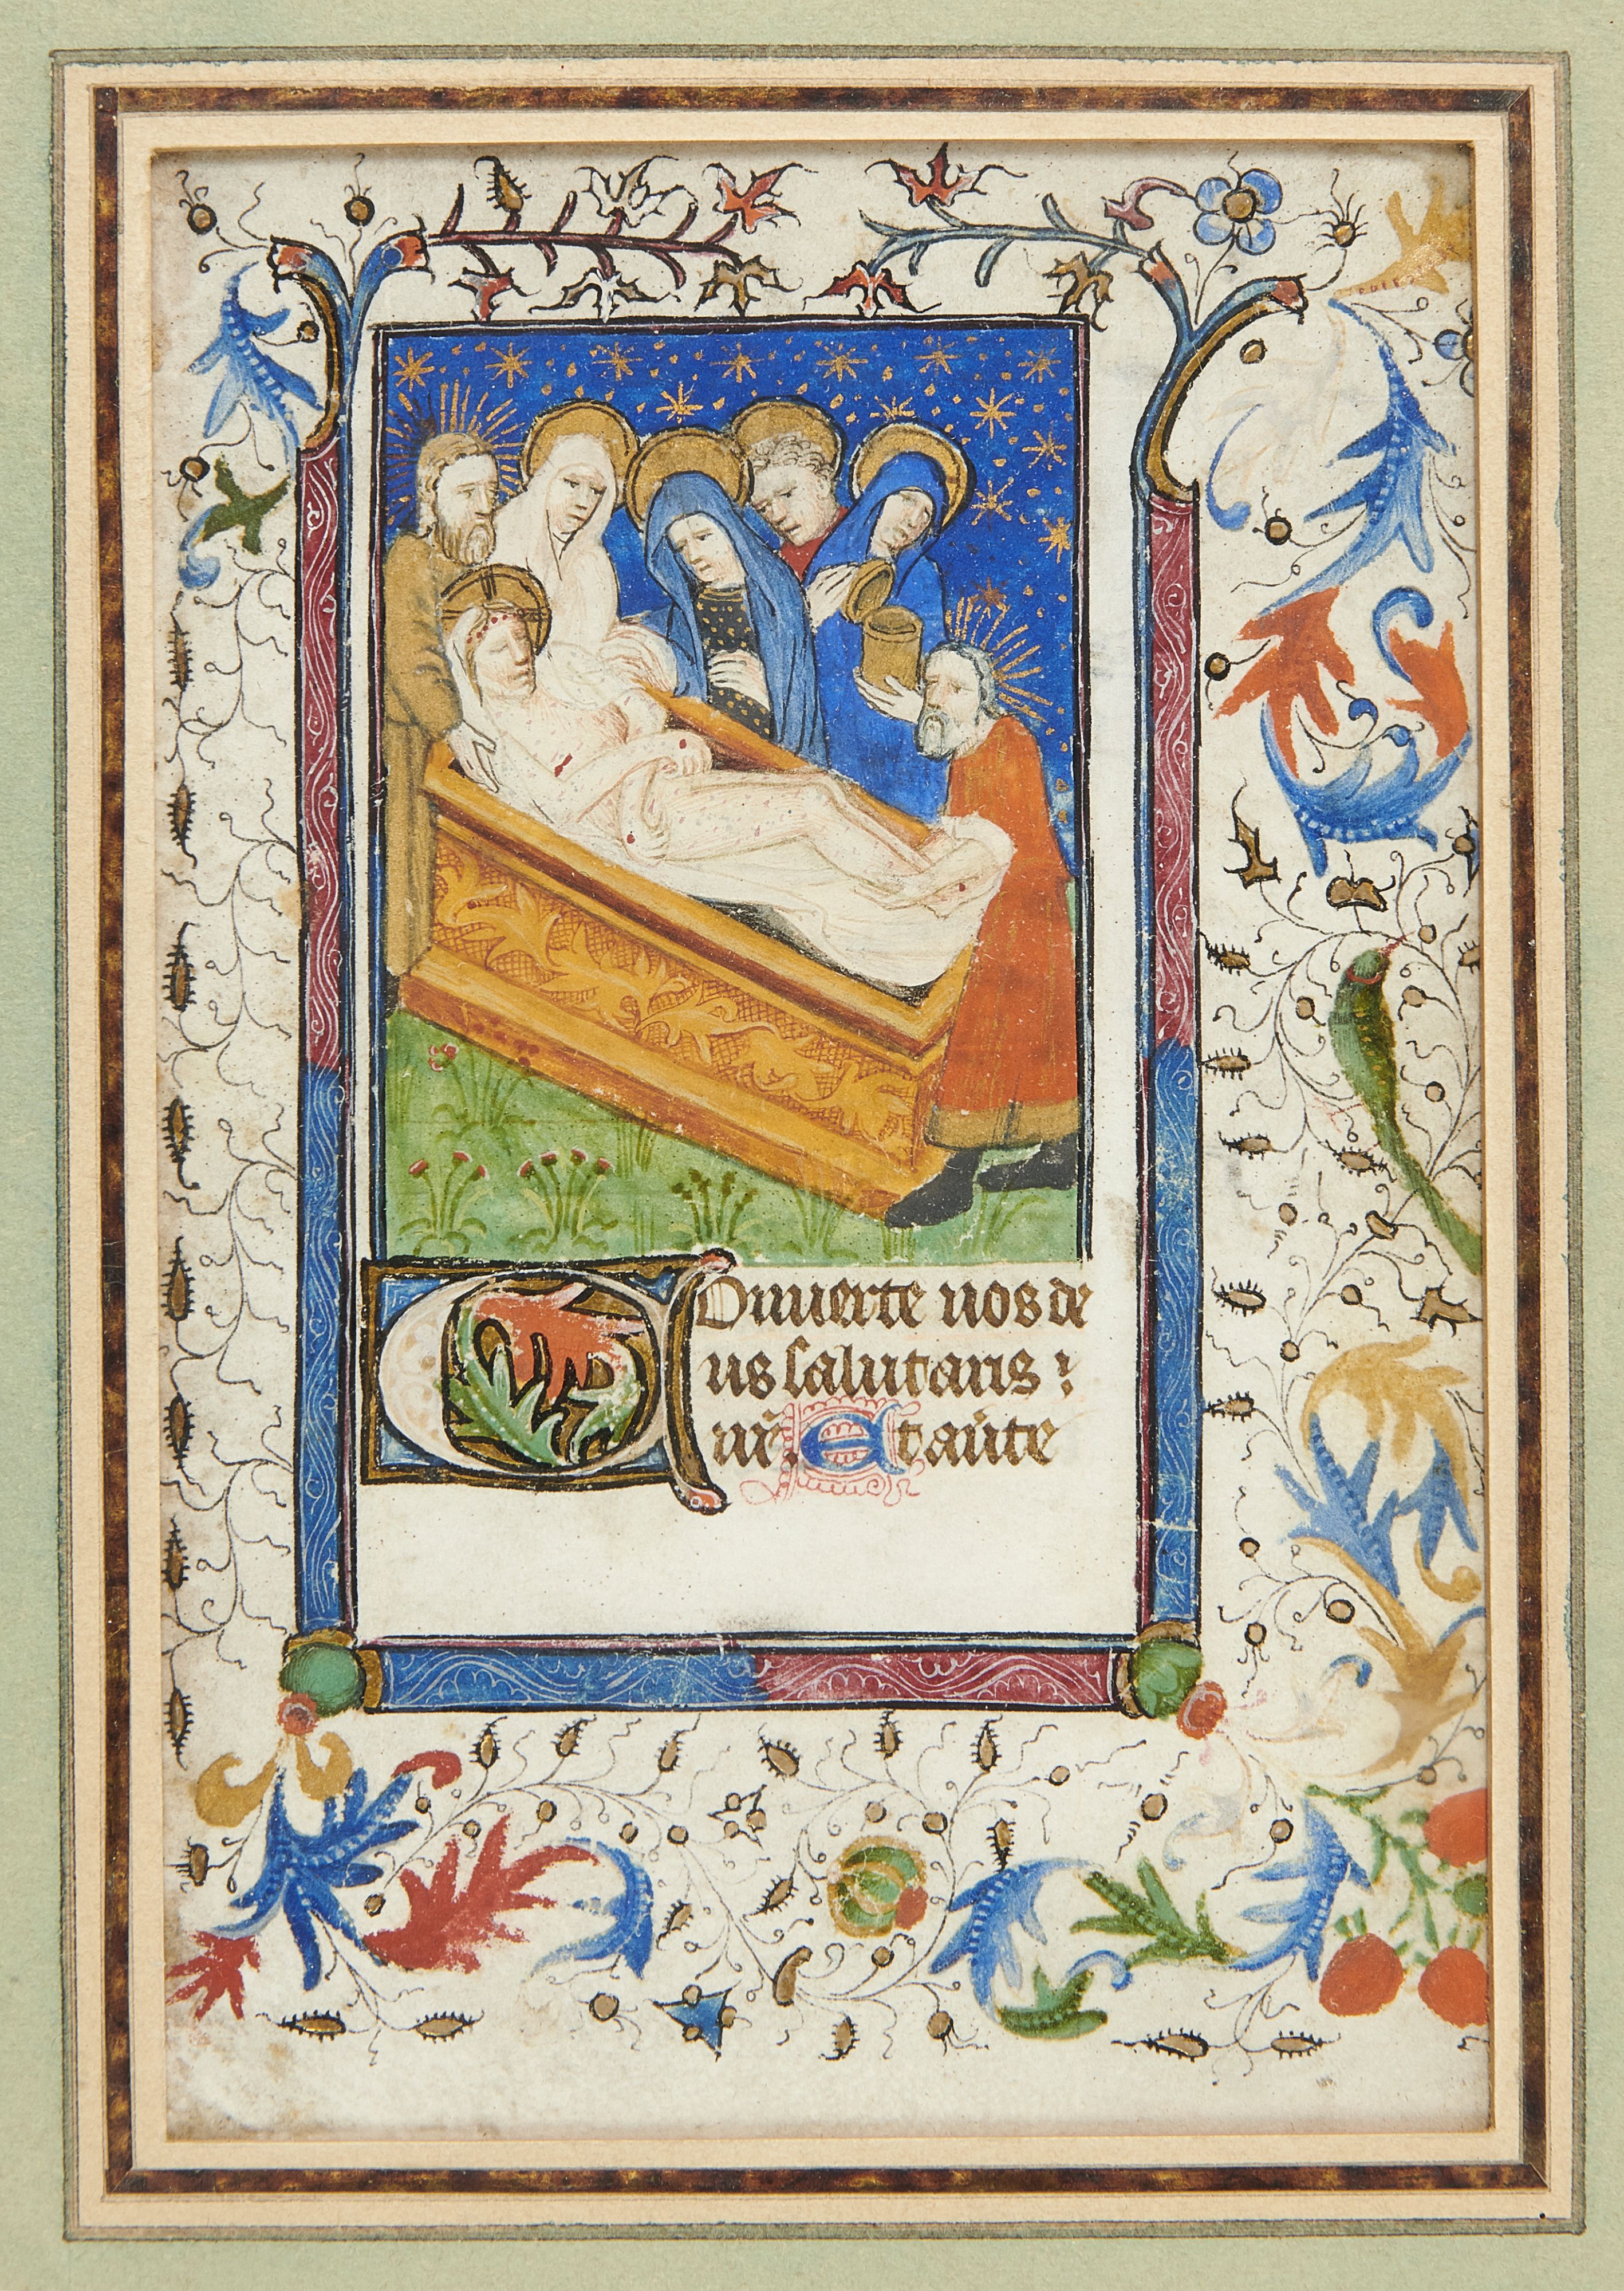 COnuerte nos de
us salutaris :
nr̄. Et au̾te